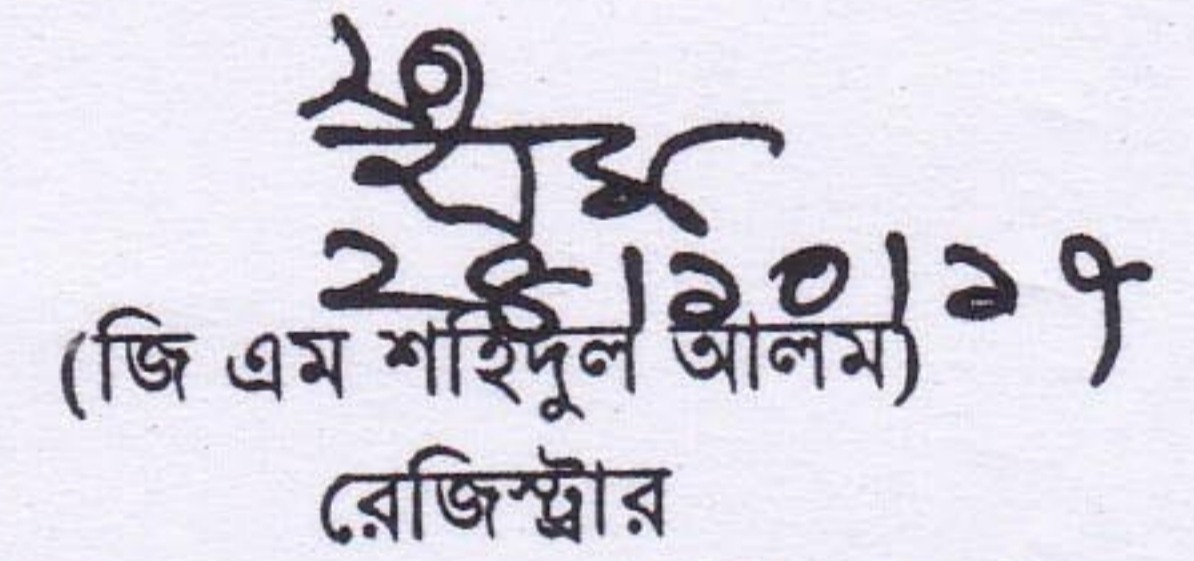 ২৪/১০/১৭
(জি এম শহিদুল আলম)
রেজিস্ট্রার